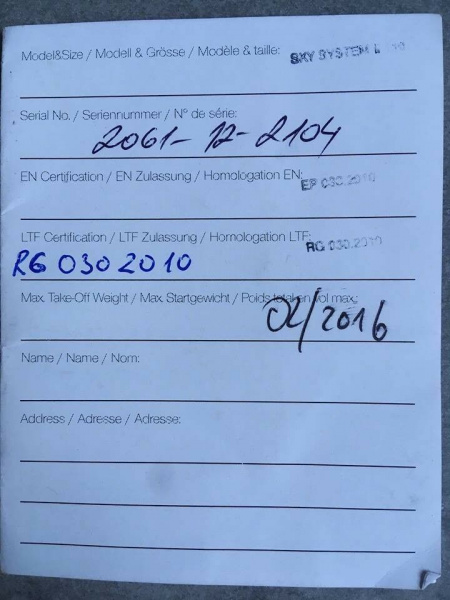 Model&Size / Modell & Grösse / Modèle & taille: SKY SYSTEM L
Serial No. / Seriennummer / N° de série:
2061-12-2104
EN Certification / EN Zulassung / Homologation EN: EP 030.2010
LTF Certification / LTF Zulassung / Homologation LTF: RG 030.2010
RG 030 2010
Max. Take-Off Weight / Max. Startgewicht / Poids total en vol max.:
04/2016
Name / Name / Nom:
Address / Adresse / Adresse: